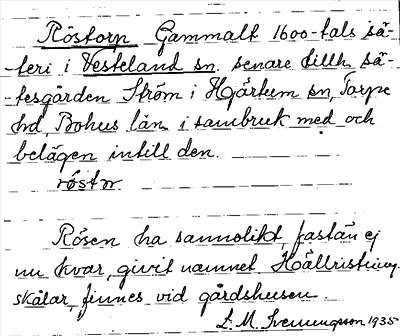 Röstorp Gammalt 1600-tals sä-
-teri i Vesteland sn. senare tillh. sä-
-tesgården Ström i Hjärtum sn, Torpe
hd, Bohus län i sambruk med och
belägen intill den.
röstor.
Rösen ha sannolikt, fastän ej
nu kvar, givit namnet Hällristning.
skålar, finnes vid gårdshusen.
L. M. Svenungson 1935